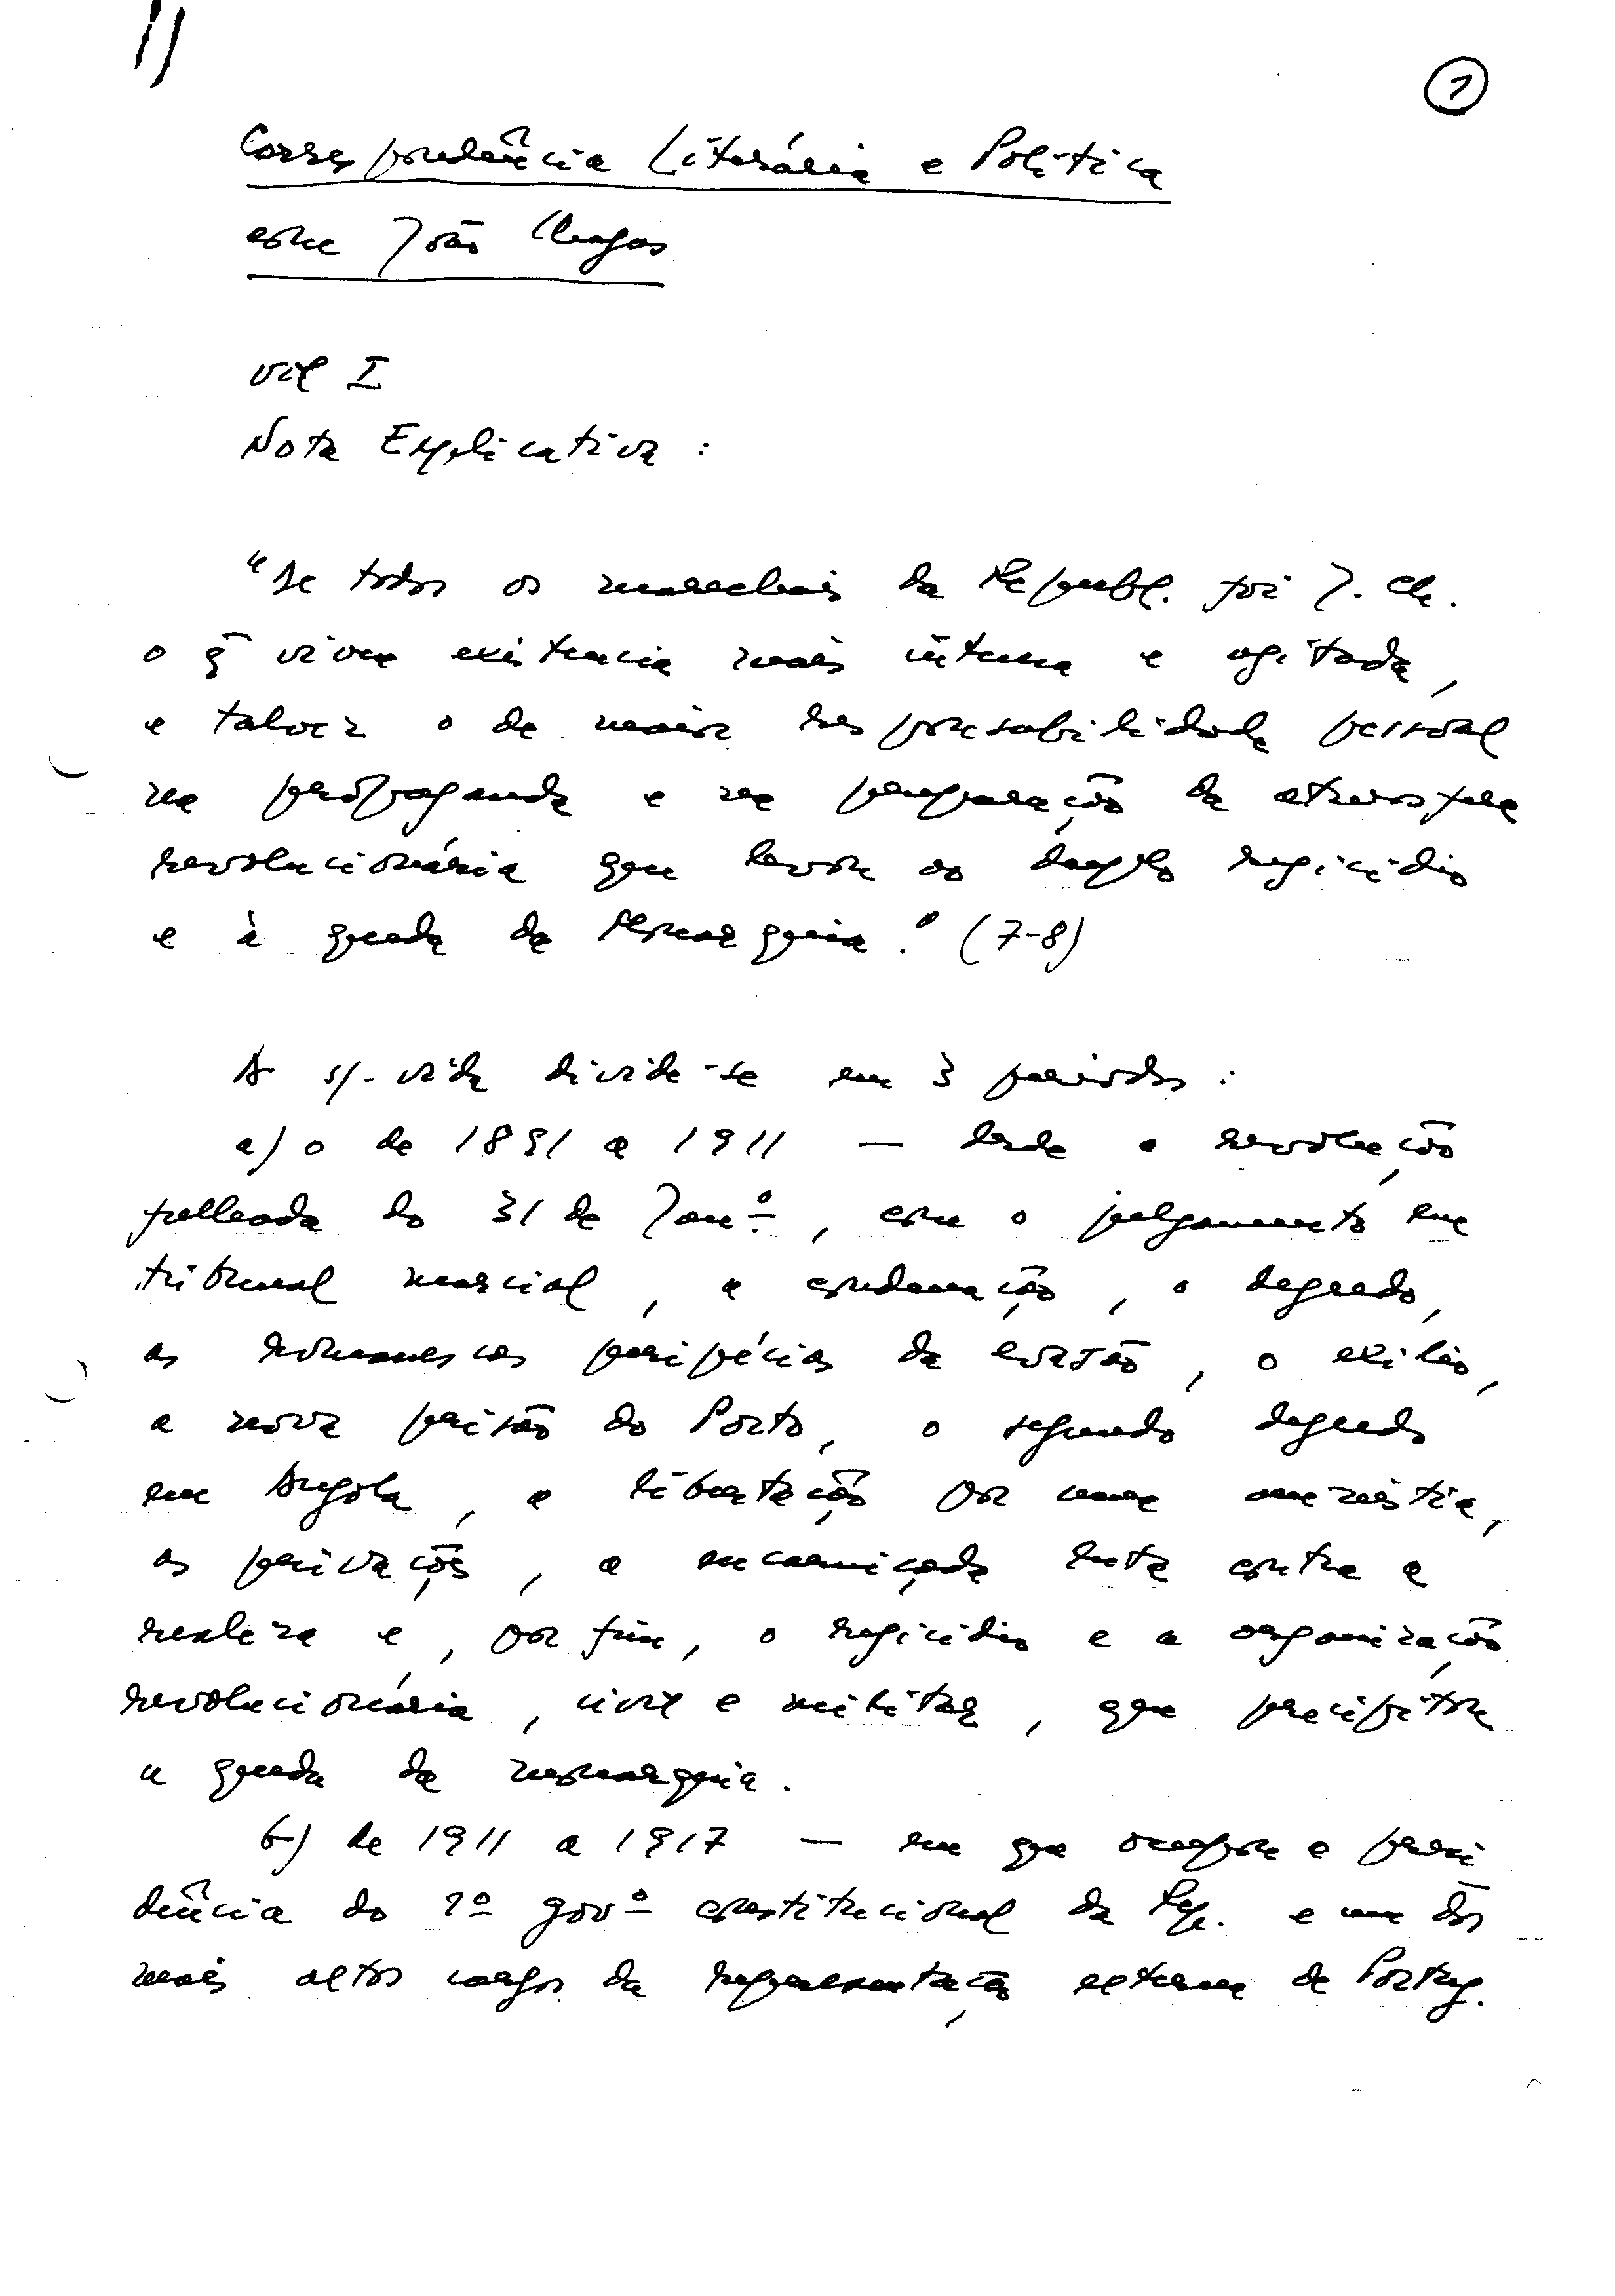 1
Correspondência Literária e Política
com João Chagas
vol I
Nota Explicativa :
"De todos os marechais da Republ. foi J. Ch.
o q̃ viveu existencia mais intensa e agitada,
e talvez o de maior responsabilidade pessoal
na propaganda e na preparação da atmosfera
revolucionária que levou ao duplo regicidio
e à queda da Monarquia." (7-8)
A s/. vida divide-se em 3 periodos :
a) o de 1891 a 1911 — desde a revolução
falhada do 31 de Janº, com o julgamento em
tribunal marcial, a condenação, o degredo,
as romanescas peripécias da evasão, o exilio,
a nova prisão do Porto, o segundo degredo
em Angola, a libertação por uma amnistia,
as privações, a encarniçada luta contra a
realeza e, por fim, o regicidio e a organização
revolucionária, civil e militar, que precipitou
a queda da monarquia.
b) de 1911 a 1917 — em que ocupou a presi
dência do 1º govº constitucional da Rep. e um dos
mais altos cargos da representação externa de Portug.